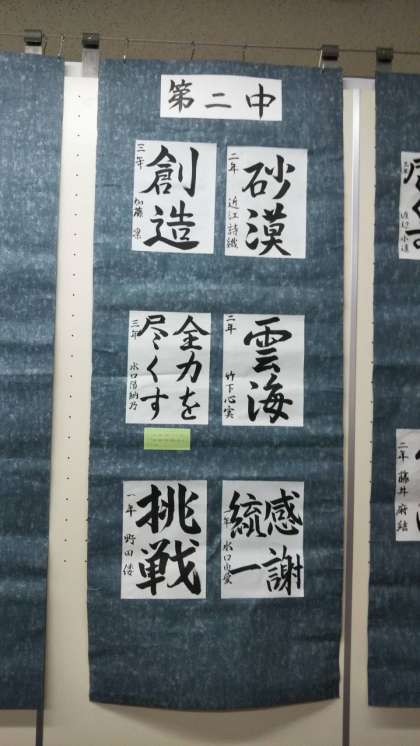 第二中
砂漠
二年 近江詩織
創造
三年 加藤 凜
雲海
二年 竹下心実
全力を
尽くす
三年 水口陽納乃
感謝
統一
年 水口由愛
挑戦
一年 野田 倭
二年 藤井 麻結